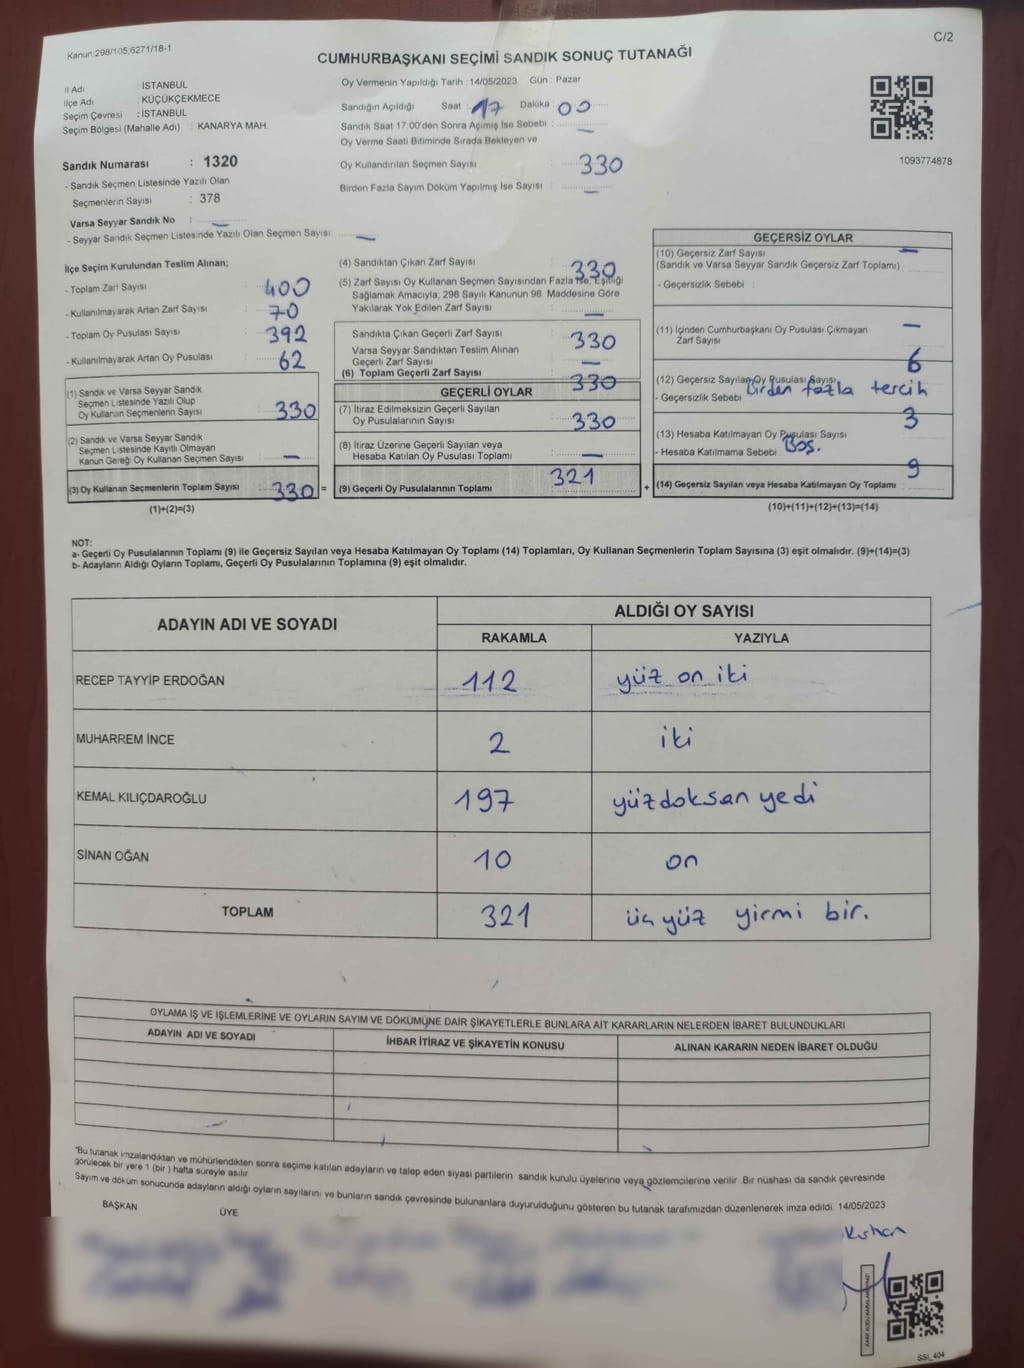 Kanun:298/105,6271/18-1
C/2
CUMHURBAŞKANI SEÇİMİ SANDIK SONUÇ TUTANAĞI
İl Adı : İSTANBUL
İlçe Adı : KÜÇÜKÇEKMECE
Seçim Çevresi : İSTANBUL
Seçim Bölgesi (Mahalle Adı) : KANARYA MAH.
Sandık Numarası : 1320
- Sandık Seçmen Listesinde Yazılı Olan
Seçmenlerin Sayısı : 378
Varsa Seyyar Sandık No : —
- Seyyar Sandık Seçmen Listesinde Yazılı Olan Seçmen Sayısı: —
Oy Vermenin Yapıldığı Tarih : 14/05/2023 Gün : Pazar
Sandığın Açıldığı Saat : 17 Dakika 00
Sandık Saat 17:00'den Sonra Açımış İse Sebebi : —
Oy Verme Saati Bitiminde Sırada Bekleyen ve
Oy Kullandırılan Seçmen Sayısı : 330
Birden Fazla Sayım Döküm Yapılmış İse Sayısı : —
1093774878
İlçe Seçim Kurulundan Teslim Alınan;
- Toplam Zarf Sayısı : 400
- Kullanılmayarak Artan Zarf Sayısı : 70
- Toplam Oy Pusulası Sayısı : 392
- Kullanılmayarak Artan Oy Pusulası : 62
(1) Sandık ve Varsa Seyyar Sandık
Seçmen Listesinde Yazılı Olup
Oy Kullanan Seçmenlerin Sayısı : 330
(2) Sandık ve Varsa Seyyar Sandık
Seçmen Listesinde Kayıtlı Olmayan
Kanun Gereği Oy Kullanan Seçmen Sayısı : —
(3) Oy Kullanan Seçmenlerin Toplam Sayısı : 330 =
(1)+(2)=(3)
(4) Sandıktan Çıkan Zarf Sayısı : 330
(5) Zarf Sayısı Oy Kullanan Seçmen Sayısından Fazla İse, Eşitliği
Sağlamak Amacıyla, 298 Sayılı Kanunun 98. Maddesine Göre
Yakılarak Yok Edilen Zarf Sayısı : —
Sandıkta Çıkan Geçerli Zarf Sayısı : 330
Varsa Seyyar Sandıktan Teslim Alınan
Geçerli Zarf Sayısı : —
(6) Toplam Geçerli Zarf Sayısı : 330
GEÇERLİ OYLAR
(7) İtiraz Edilmeksizin Geçerli Sayılan
Oy Pusulalarının Sayısı : 330
(8) İtiraz Üzerine Geçerli Sayılan veya
Hesaba Katılan Oy Pusulası Toplamı : —
(9) Geçerli Oy Pusulalarının Toplamı : 321 +
GEÇERSİZ OYLAR
(10) Geçersiz Zarf Sayısı —
(Sandık ve Varsa Seyyar Sandık Geçersiz Zarf Toplamı) :
- Geçersizlik Sebebi :
(11) İçinden Cumhurbaşkanı Oy Pusulası Çıkmayan
Zarf Sayısı : —
(12) Geçersiz Sayılan Oy Pusulası Sayısı : 6
- Geçersizlik Sebebi : Birden fazla tercih
(13) Hesaba Katılmayan Oy Pusulası Sayısı : 3
- Hesaba Katılmama Sebebi : Boş.
(14) Geçersiz Sayılan veya Hesaba Katılmayan Oy Toplamı : 9
(10)+(11)+(12)+(13)=(14)
NOT:
a- Geçerli Oy Pusulalarının Toplamı (9) ile Geçersiz Sayılan veya Hesaba Katılmayan Oy Toplamı (14) Toplamları, Oy Kullanan Seçmenlerin Toplam Sayısına (3) eşit olmalıdır. (9)+(14)=(3)
b- Adayların Aldığı Oyların Toplamı, Geçerli Oy Pusulalarının Toplamına (9) eşit olmalıdır.
ADAYIN ADI VE SOYADI
ALDIĞI OY SAYISI
RAKAMLA YAZIYLA
RECEP TAYYİP ERDOĞAN 112 yüz on iki
MUHARREM İNCE 2 iki
KEMAL KILIÇDAROĞLU 197 yüzdoksan yedi
SİNAN OĞAN 10 on
TOPLAM 321 üç yüz yirmi bir.
OYLAMA İŞ VE İŞLEMLERİNE VE OYLARIN SAYIM VE DÖKÜMÜNE DAİR ŞİKAYETLERLE BUNLARA AİT KARARLARIN NELERDEN İBARET BULUNDUKLARI
ADAYIN ADI VE SOYADI İHBAR İTİRAZ VE ŞİKAYETİN KONUSU ALINAN KARARIN NEDEN İBARET OLDUĞU
*Bu tutanak imzalandıktan ve mühürlendikten sonra seçime katılan adayların ve talep eden siyasi partilerin sandık kurulu üyelerine veya gözlemcilerine verilir. Bir nüshası da sandık çevresinde
görülecek bir yere 1 (bir) hafta süreyle asılır.
Sayım ve döküm sonucunda adayların aldığı oyların sayılarını ve bunların sandık çevresinde bulunanlara duyurulduğunu gösteren bu tutanak tarafımızdan düzenlenerek imza edildi. 14/05/2023
BAŞKAN
ÜYE
SSI_404